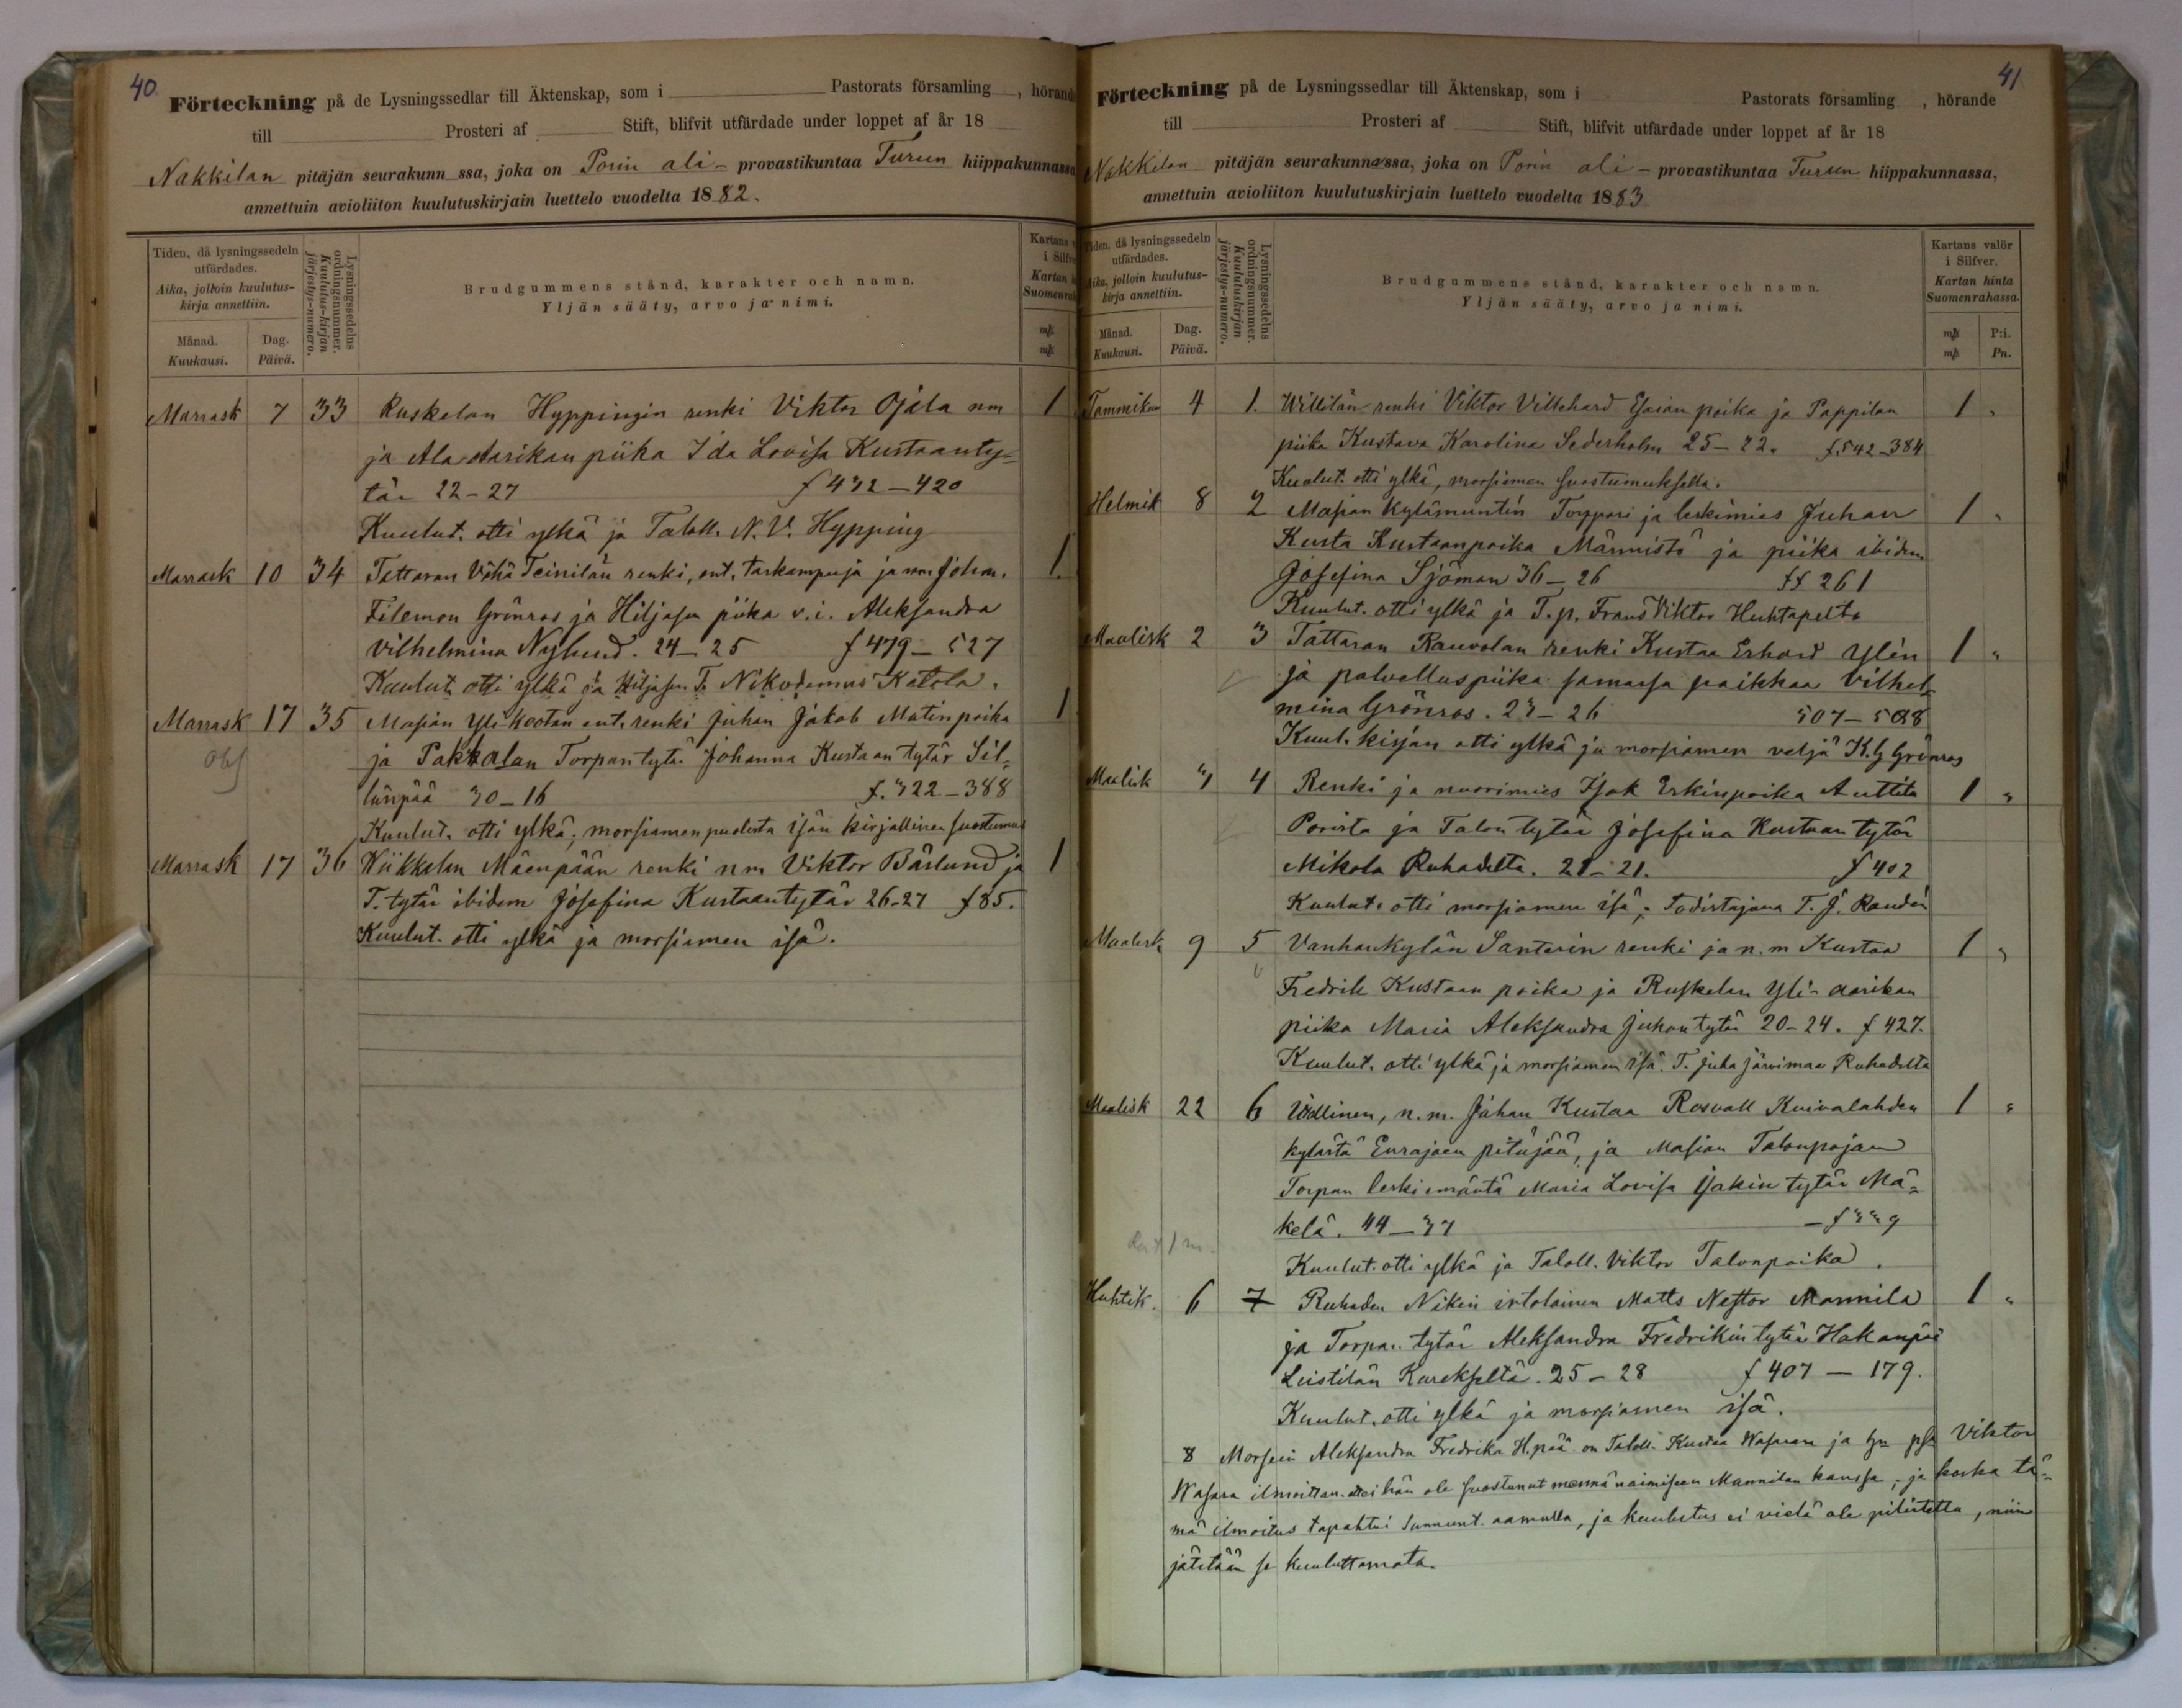 40
Förteckning på de Lysningssedlar till Äktenskap, som i Pastorats församling , hörande
till Prosteri af Stift, blifvit utfärdade under loppet af år 18
Nakkilan pitäjän seurakunn ssa, joka on Porin ali - provastikuntaa Turun hiippakunnassa
annettuin avioliiton kuulutuskirjain luettelo vuodelta 1882.
Tiden, då lysningssedeln utfärdades.
Aika, jolloin kuulutuskirja annettiin.
Månad. Kuukausi.
Dag. Päivä.
Lysningssedelns ordningsnummer.
Kuulutus-kirjan järjestys-numero.
Brudgummens stånd, karakter och namn.
Yljän sääty, arvo ja nimi.
Marrask 7 33 Ruskelan Hyppingin renki Viktor Ojala nm 1
ja Ala aarikan piika Ida Lovisa Kustaanty=
tär 22-27 f 432-420
Kuulut. otti ylkä ja Taloll. N. V. Hypping
Marrask 10 34 Tattaran Vähä Teinilän renki, ent. tarkampuja ja nm. Johan. 1.
Filemon Grönros ja Hiljasen piika v.i. Aleksandra
Vilhelmina Nylund. 24-25 f 479-527
Kuulut. otti ylkä ja Hiljasen T. Nikodemus Ketola.
Marrask 17 35 Masian Yli-Kootan ent. renki Juhan Jakob Matinpoika 1
Obs
ja Pakkalan Torpan tytä Johanna Kustaan tytär Sil=
länpää 30-16 f. 322-388
Kuulut. otti ylkä; morsiamen puolesta isän kirjallinen suostumus
Marrask 17 36 Wiikkalan Mäenpään renki nm Viktor Bärlund ja 1
T. tytär ibidem Josefina Kustaantytär 26-27 f 85.
Kuulut. otti ylkä ja morsiamen isä.
41
Förteckning på de Lysningssedlar till Äktenskap, som i Pastorats församling , hörande
till Prosteri af Stift, blifvit utfärdade under loppet af år 18
Nakkilan pitäjän seurakunnassa, joka on Porin ali - provastikuntaa Turun hiippakunnassa,
annettuin avioliiton kuulutuskirjain luettelo vuodelta 1883
Tiden, då lysningssedeln utfärdades.
Aika, jolloin kuulutuskirja annettiin.
Månad. Kuukausi.
Dag. Päivä.
Lysningssedelns ordningsnummer.
Kuulutuskirjan järjestys-numero.
Brudgummens stånd, karakter och namn.
Yljän sääty, arvo ja nimi.
Kartans valör i Silfver.
Kartan hinta Suomenrahassa.
P:i.
Pn.
Tammikuu 4 1. Willilän renki Viktor Villehard Esaian poika ja Pappilan 1 "
piika Kustava Karolina Sederholm 25-22. f. 542-384
Kuulut. otti ylkä, morsiamen suostumuksella.
Helmik 8 2 Masian Kylämuntin Torppari ja leskimies Juhan 1 "
Kusta Kustaanpoika Männistö ja piika ibidem
Josefina Sjöman 36-26 ff 261
Kuulut. otti ylkä ja T.p. Frans Viktor Huhtapelto
Maalisk 2 3 Tattaran Rauvolan renki Kustaa Erhard Ylén 1 "
ja palvelluspiika samassa paikkaa Vilhel=
mina Grönros. 23-26 507-508
Kuul. kirjan otti ylkä ja morsiamen veljä K. G Grönros
Maalisk 7 4 Renki ja nuorimies Isak Erkinpoika Anttila 1 "
Porista ja Talon tytär Josefina Kustaan tytär
Mikola Ruhadelta. 21-21. f 402
Kuulut. otti morsiamen isä; Todistajana T. J. Randén
Maalisk 9 5 Vanhankylän Santerin renki ja n.m Kustaa 1 "
Fredrik Kustaan poika ja Ruskelan Yli-aarikan
piika Maria Aleksandra Juhan tytär 20-24. f 427.
Kuulut. otti ylkä ja morsiamen isä. T. Juha Järvimaa Ruhadelta
Maalisk 22 6 Itsellinen, n.m. Juhan Kustaa Rosvall Kuivalahden 1 "
kylästä Eurajoen pitäjää, ja Masian Talonpojan
Torpan leskiemäntä Maria Lovisa Isakin tytär Mä=
kelä. 44-37 - f 339
Kuulut. otti ylkä ja Taloll. Viktor Talonpoika.
Huhtik. 6 7 Ruhaden Nikin irtolainen Matts Nestor Mannila 1 "
ja Torpan tytär Aleksandra Fredrikin tytär Hakanpää
Leistilän Karekseltä. 25-28 f 407-179.
Kuulut. otti ylkä ja morsiamen isä.
8 Morsein Aleksandra Fredrika H.pää on Taloll. Kustaa Wasaran ja Viktor
Wasara ilmoittan. ettei hän ole suostunut mennä naimiseen Mannilan kanssa; ja koska tä=
mä ilmoitus tapahtui Sunnunt. aamulla, ja kuulutus ei vielä ole pitistetta, niin
jätetään se kuuluttamata.